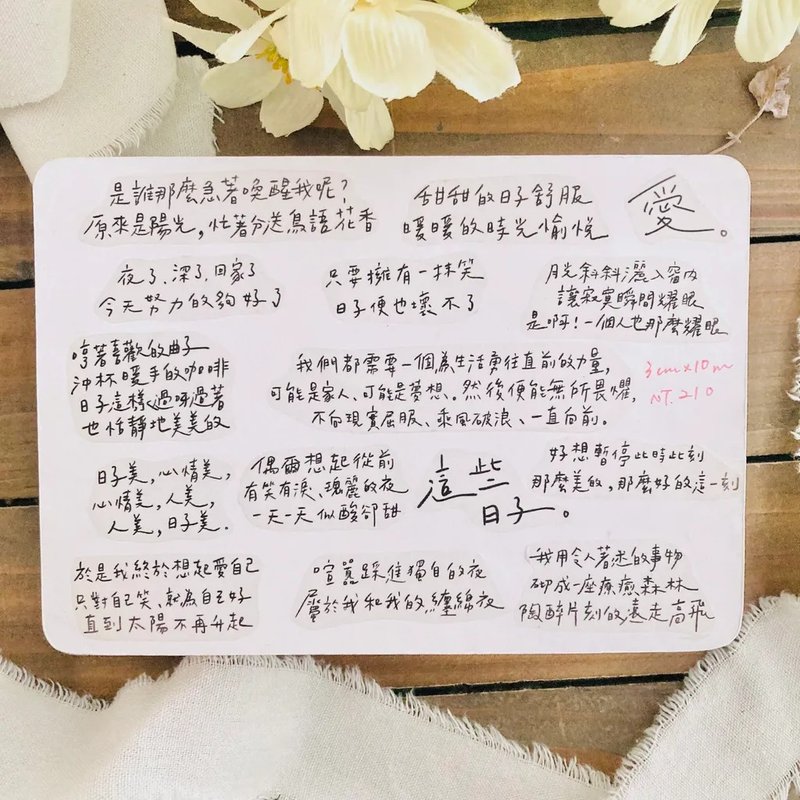 是誰那麼急著喚醒我呢？
原來是陽光，忙著分送鳥語花香
甜甜的日子舒服
暖暖的時光愉悅
愛。
夜了、深了、回家了
今天努力的夠好了
只要擁有一抹笑
日子便也壞不了
月光斜斜灑入窗內
讓寂寞瞬間耀眼
是啊！一個人也那麼耀眼
哼著喜歡的曲子
沖杯暖手的咖啡
日子這樣過呀過著
也恬靜地美美的
我們都需要一個為生活勇往直前的力量，
可能是家人、可能是夢想。然後便能無所畏懼，
不向現實屈服、乘風破浪、一直向前。
3cm×10m
NT.210
日子美，心情美，
心情美，人美，
人美，日子美.
偶爾想起從前
有笑有淚、瑰麗的夜
一天一天似酸卻甜
這些
日子。
好想暫停此時此刻
那麼美的，那麼好的這一刻
於是我終於想起愛自己
只對自己笑、就為自己好
直到太陽不再升起
喧囂踩進獨自的夜
屬於我和我的纏綿夜
我用令人著迷的事物
砌成一座療癒森林
陶醉片刻的遠走高飛